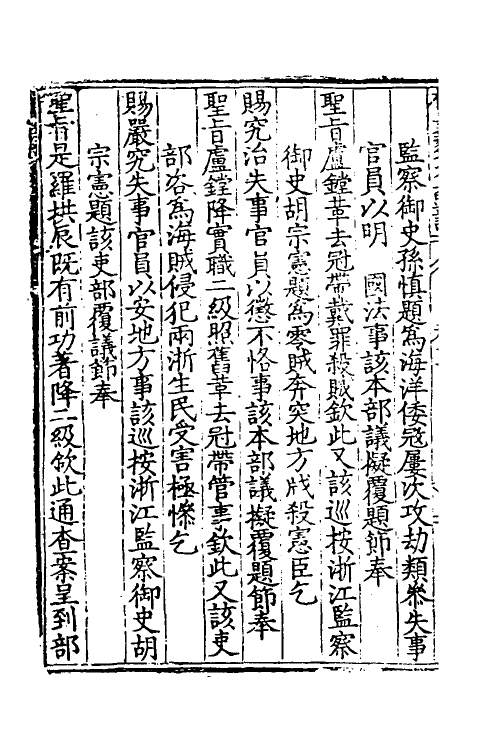 監察御史孫慎題為海洋倭寇屢次攻劫類叅失事
官員以明　國法事該本部議擬覆題節奉
聖旨盧鏜革去冠帶戴罪殺賊欽此又該巡按浙江監察
御史胡宗憲題為零賊奔突地方戕殺憲臣乞
賜究治失事官員以懲不恪事該本部議擬覆題節奉
聖旨盧鏜降實職二級照舊革去冠帶管事欽此又該吏
部咨為海賊侵犯兩浙生民受害極慘乞
賜嚴究失事官員以安地方事該巡按浙江監察御史胡
宗憲題該吏部覆議節奉
聖旨是羅拱辰既有前功著降二級欽此通查案呈到部